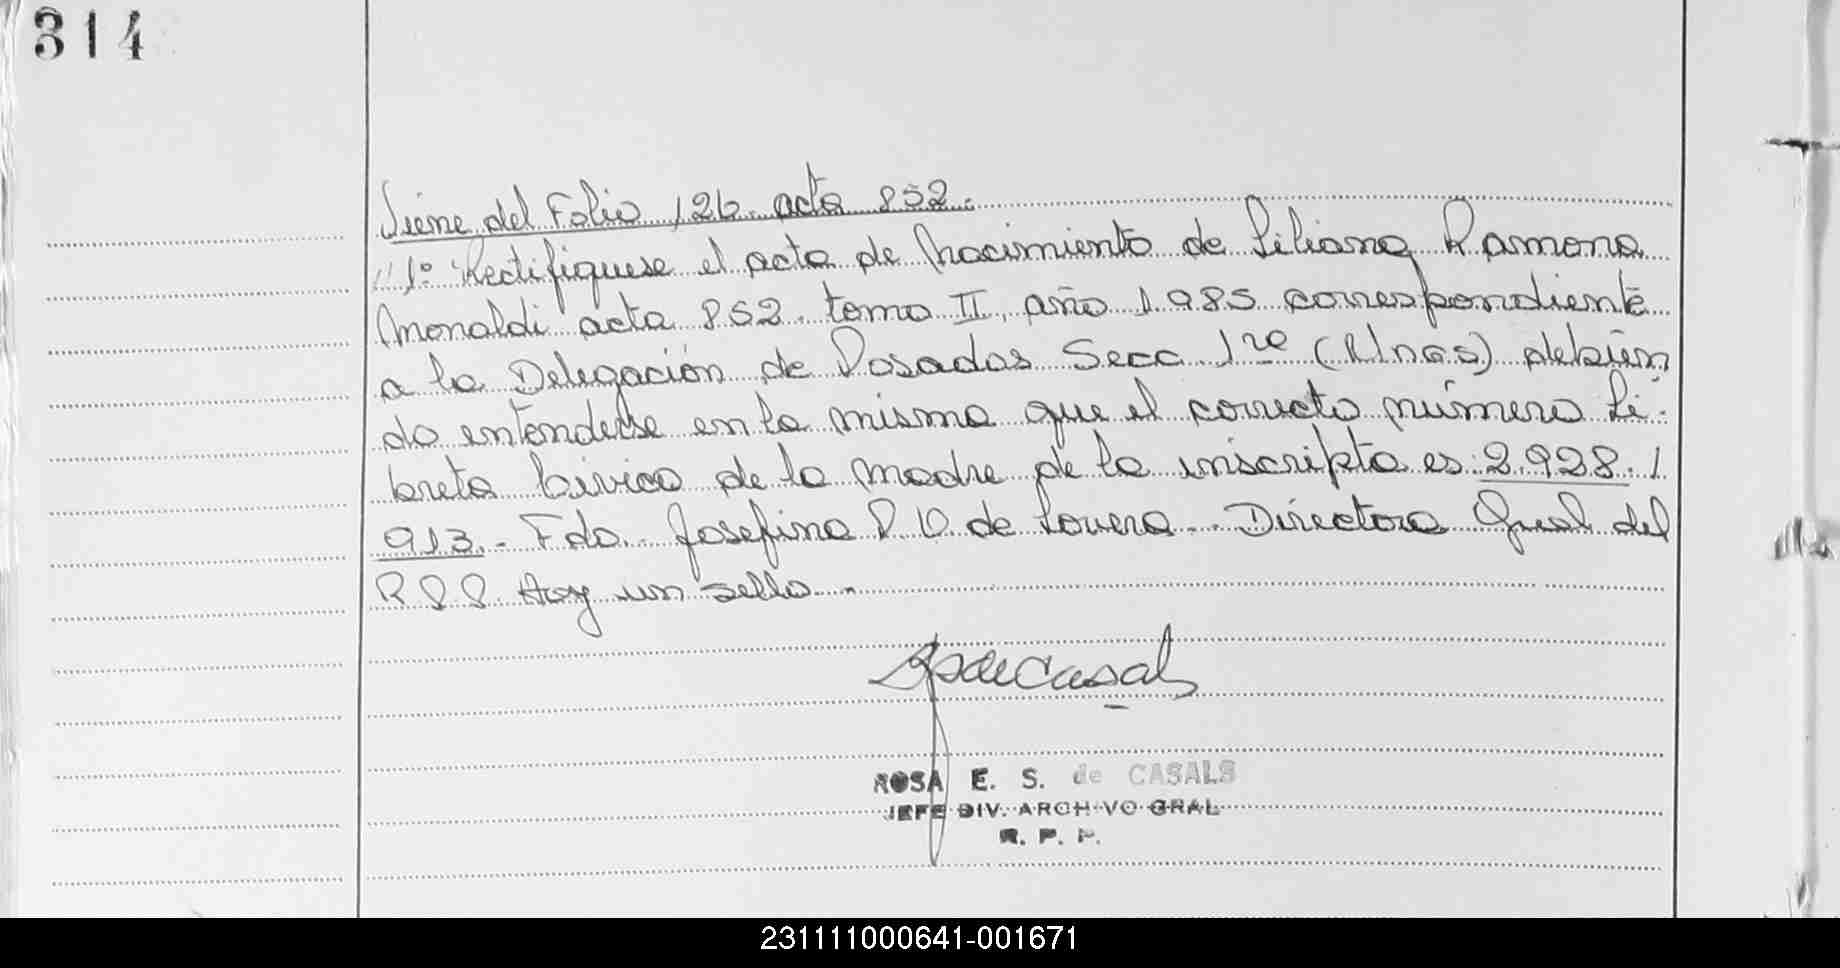 314
Viene del Folio 126. acta 852.
"1º Rectifiquese el acta de Nacimiento de Liliana Ramona
Monaldi acta 852. tomo II, año 1.985 correspondiente
a la Delegación de Posadas Secc 1ra debien
do entenderse en la misma que el correcto número Li-
breta Civica de la madre de la inscripta es: 2.928.
913.- Fdo. Josefina de Lovera.. Directora Gral del
RPP. Hay un sello.-
ROSA E. S. de CASALS
JEFE DIV. ARCHIVO GRAL
R. P. P.
231111000641-001671